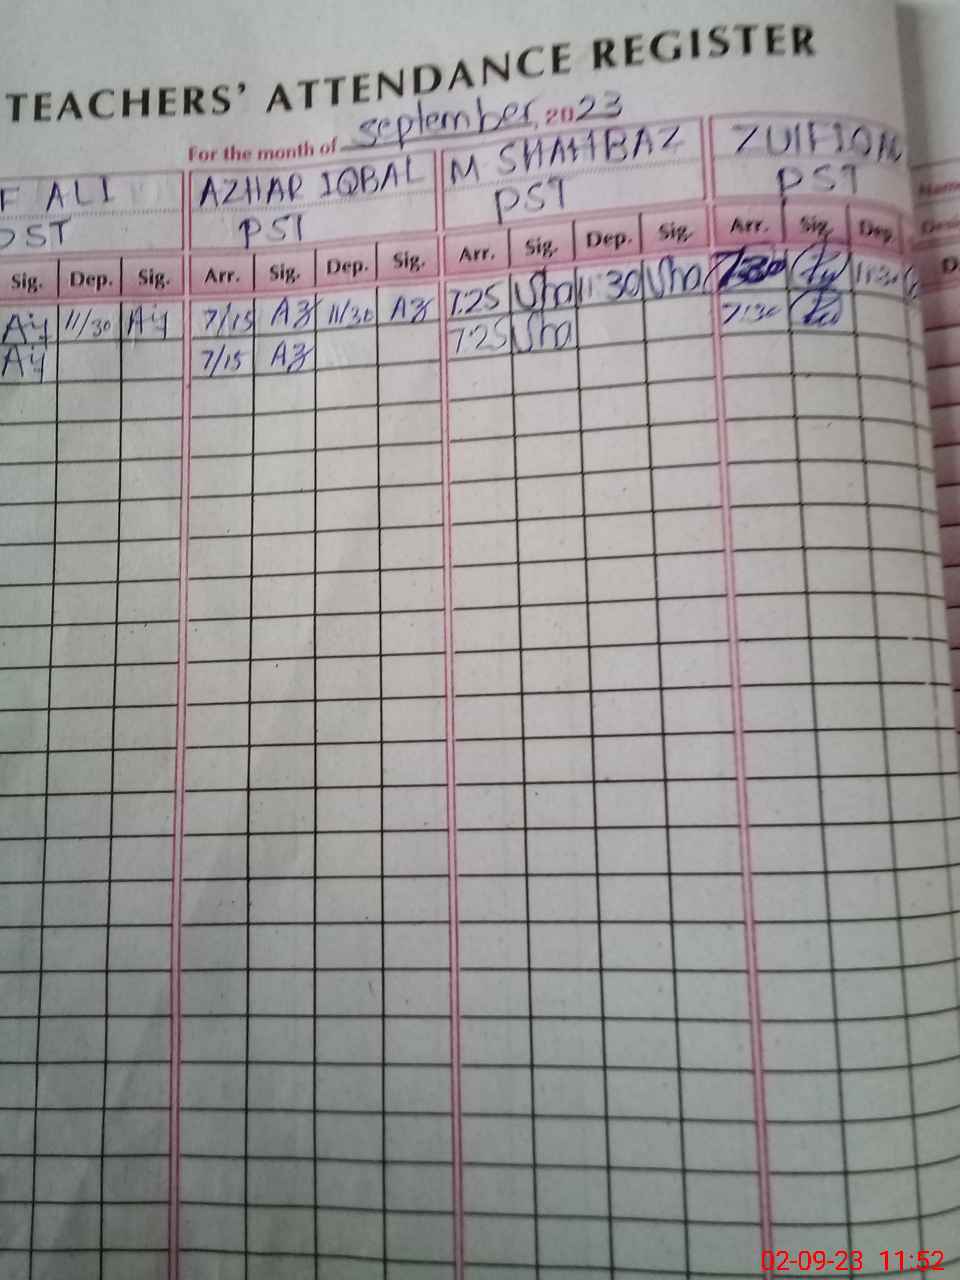 TEACHERS' ATTENDANCE REGISTER
For the month of September, 2023
F ALI AZHAR IQBAL M SHAHBAZ
PST PST PST PST
Sig. Dep. Sig. Arr. Sig. Dep. Sig. Arr. Sig. Dep. Sig. Arr. Sig. Dep
11/30 7/15 Az 11/30 Az 7:25 Sha 11:30 Sha 7:30 11:30
7/15 Az 7:25 Sha 7:30
02-09-23 11:52